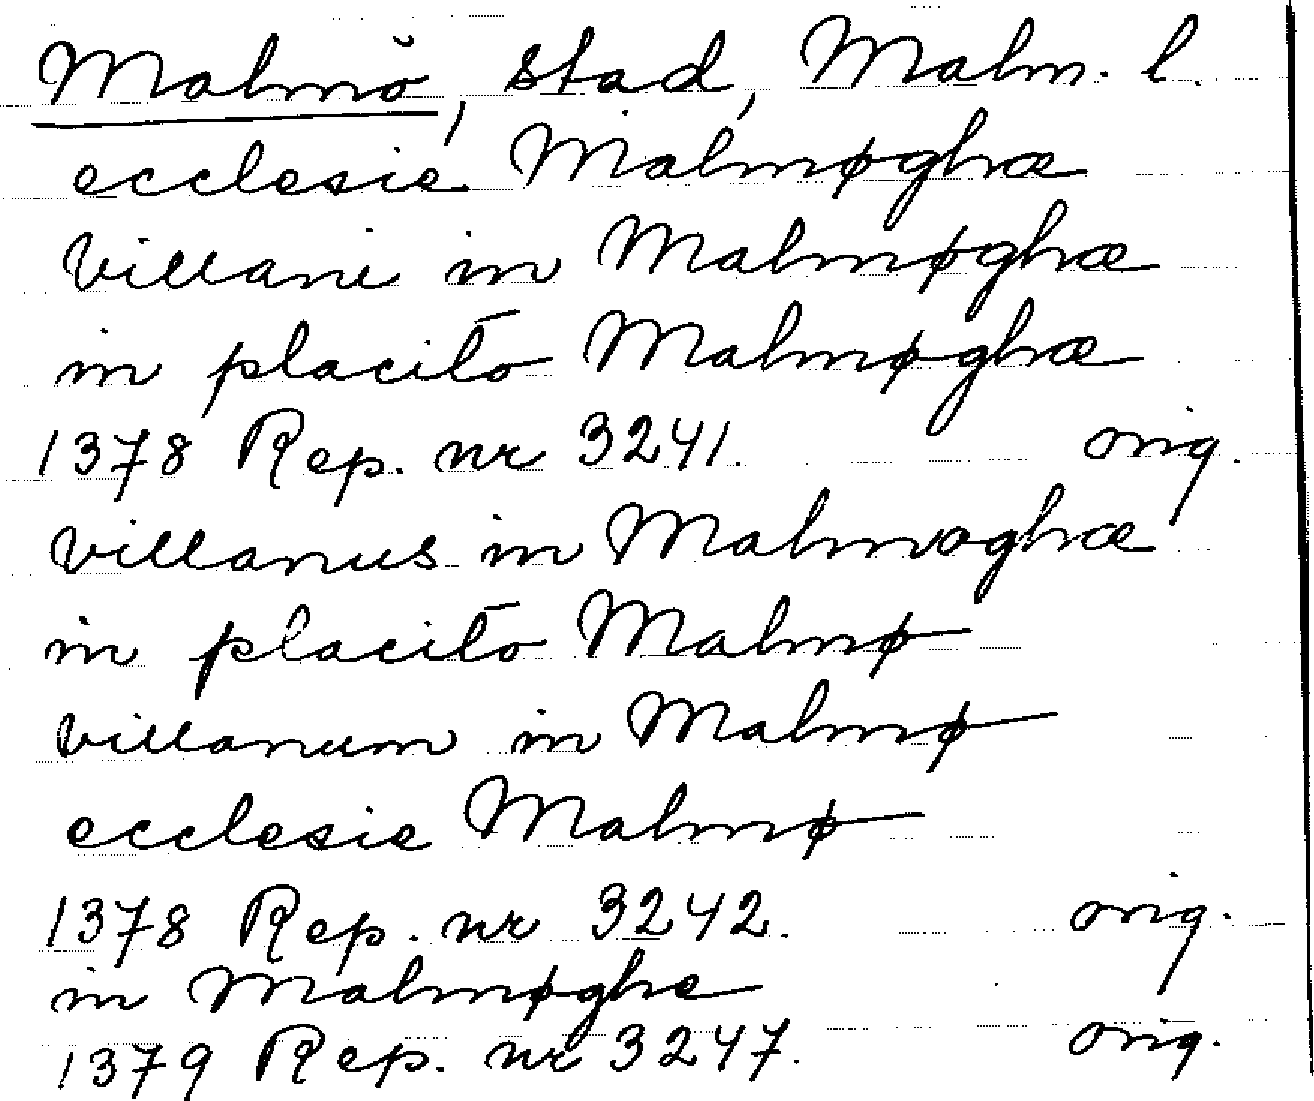 Malmö, stad, Malm. l.
ecclesie Malmøghæ
villani in Malmøghæ
in placito Malmøghæ
1378 Rep. nr 3241. orig.
villanus in Malmoghæ
in placito Malmø
villanum in Malmø
ecclesie Malmø
1378 Rep. nr 3242. orig.
in Malmøghe
1379 Rep. nr 3247. orig.